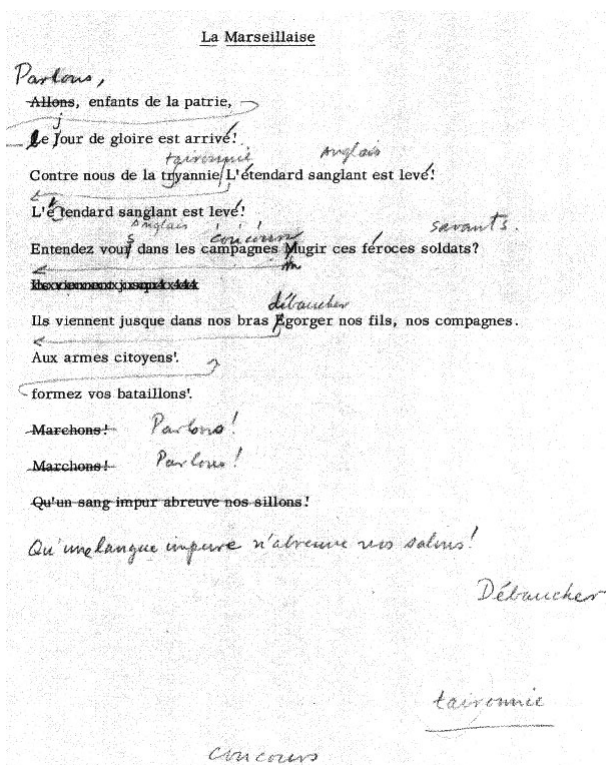 La Marseillaise
Parlons,
Allons, enfants de la patrie,
j
Le Jour de gloire est arrivé!
taironnie Anglais
Contre nous de la tryannie/L'étendard sanglant est levé!
L'étendard sanglant est levé!
Anglais concours savants.
Entendez vous dans les campagnes Mugir ces féroces soldats?
m
débaucher
Ils viennent jusque dans nos bras Egorger nos fils, nos compagnes.
Aux armes citoyens!
formez vos bataillons!
Marchons! Parlons!
Marchons! Parlons!
Qu'un sang impur abreuve nos sillons!
Qu'une langue impure n'abreuve nos salons!
Débaucher
taironnie
concours